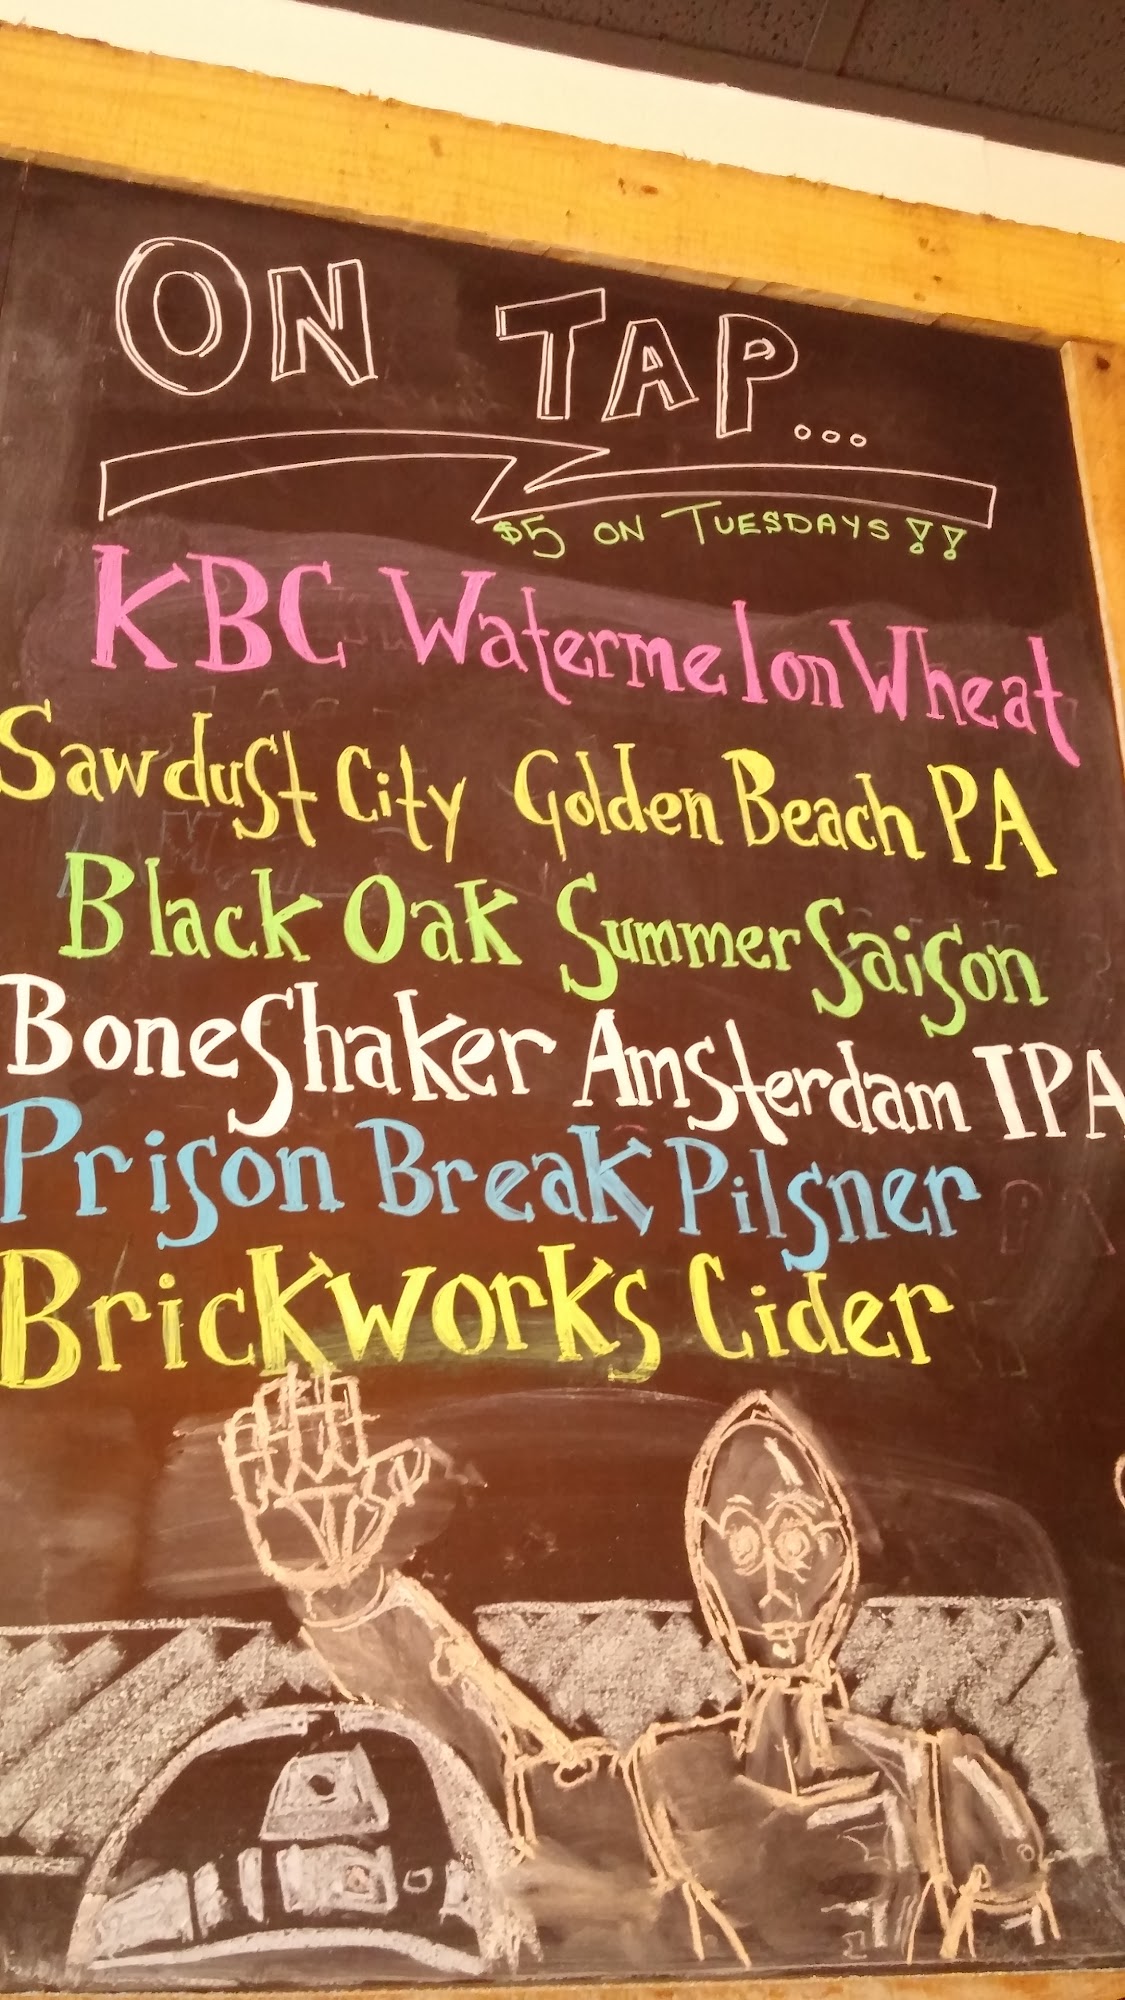 ON TAP...
$5 ON TUESDAYS!!
KBC Watermelon Wheat
Sawdust City Golden Beach PA
Black Oak Summer Saison
Boneshaker Amsterdam IPA
Prison Break Pilsner
Brickworks Cider